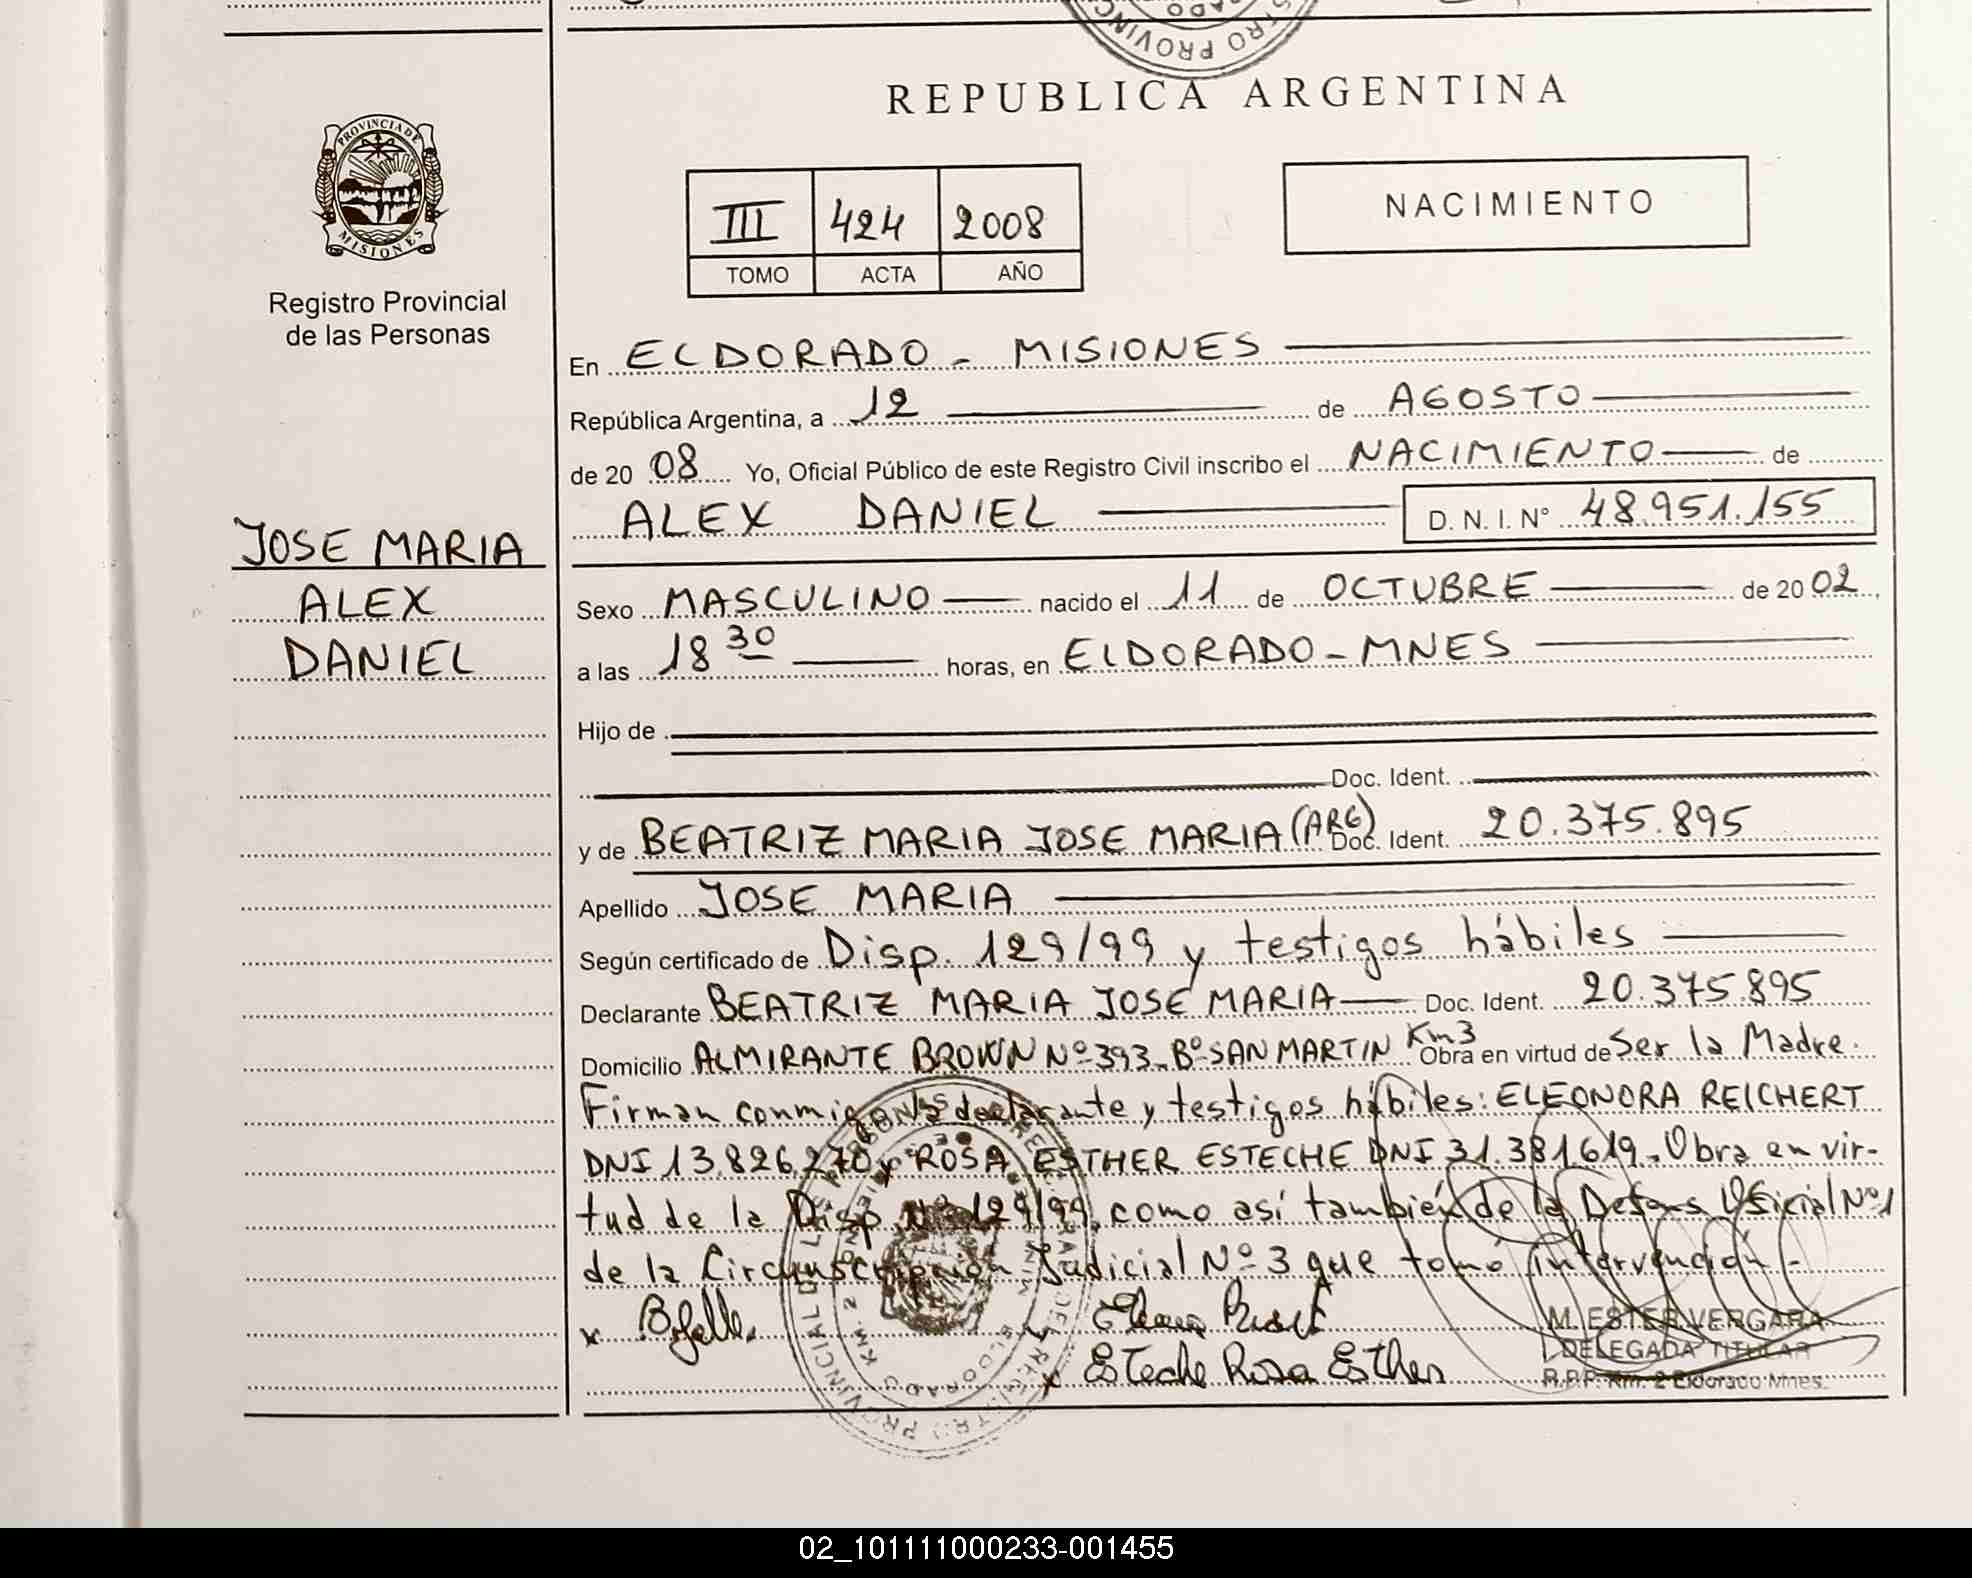 REPUBLICA ARGENTINA
PROVINCIA DE
MISIONES
Registro Provincial
de las Personas
III 424 2008
TOMO ACTA AÑO
NACIMIENTO
En ELDORADO - MISIONES
República Argentina, a 12 de AGOSTO
de 20 08 Yo, Oficial Público de este Registro Civil inscribo el NACIMIENTO de
ALEX DANIEL D. N. I. Nº 48.951.155
JOSE MARIA
ALEX
DANIEL
Sexo MASCULINO nacido el 11 de OCTUBRE de 20 02,
a las 18 30 horas, en ELDORADO - MNES
Hijo de
Doc. Ident.
y de BEATRIZ MARIA JOSE MARIA (ARG) Doc. Ident. 20.375.895
Apellido JOSE MARIA
Según certificado de Disp. 129/99 y testigos hábiles
Declarante BEATRIZ MARIA JOSE MARIA Doc. Ident. 20.375.895
Domicilio ALMIRANTE BROWN Nº 393 - Bº SAN MARTIN Km3 Obra en virtud de Ser la Madre.
Firman conmigo la declarante y testigos hábiles: ELEONORA REICHERT
DNI 13.826.270 y ROSA ESTHER ESTECHE DNI 31.381.619. Obra en vir-
tud de la Disp. Nº 129/99, como así también de la Defens. Oficial Nº 1
de la Circunscripción Judicial Nº 3 que tomó intervención -
x
x Esteche Rosa Esther
M. ESTER VERGARA
DELEGADA TITULAR
R.P.P. Km. 2 Eldorado Mnes.
02_101111000233-001455